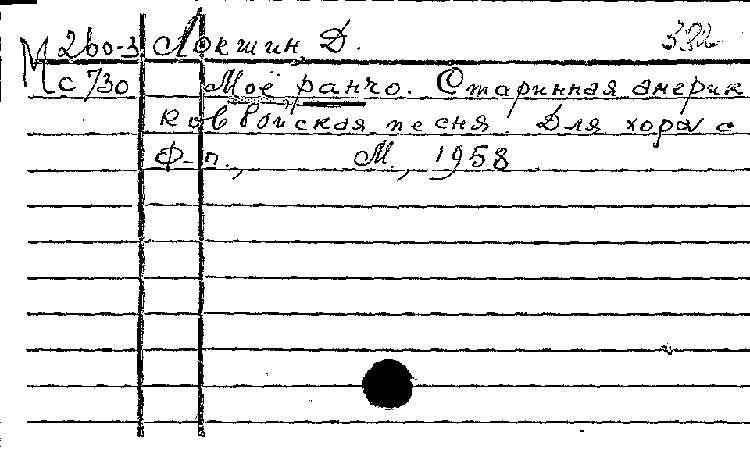 М 260-3 Локшин, Д. 382
с 730 Моё ранчо. Старинная америк
ковбойская песня. Для хора с
ф-п., М., 1958